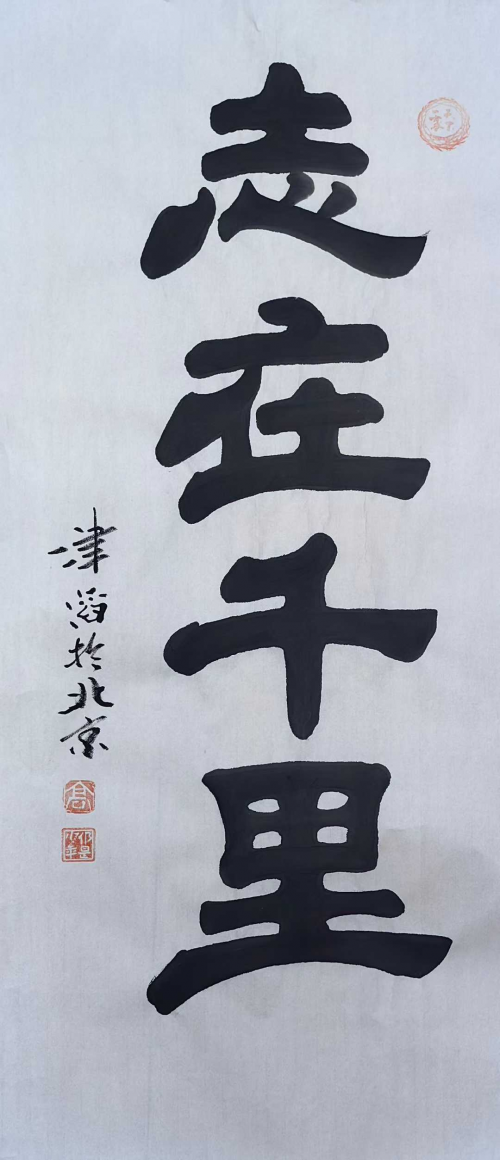 志在千里
津滔於北京